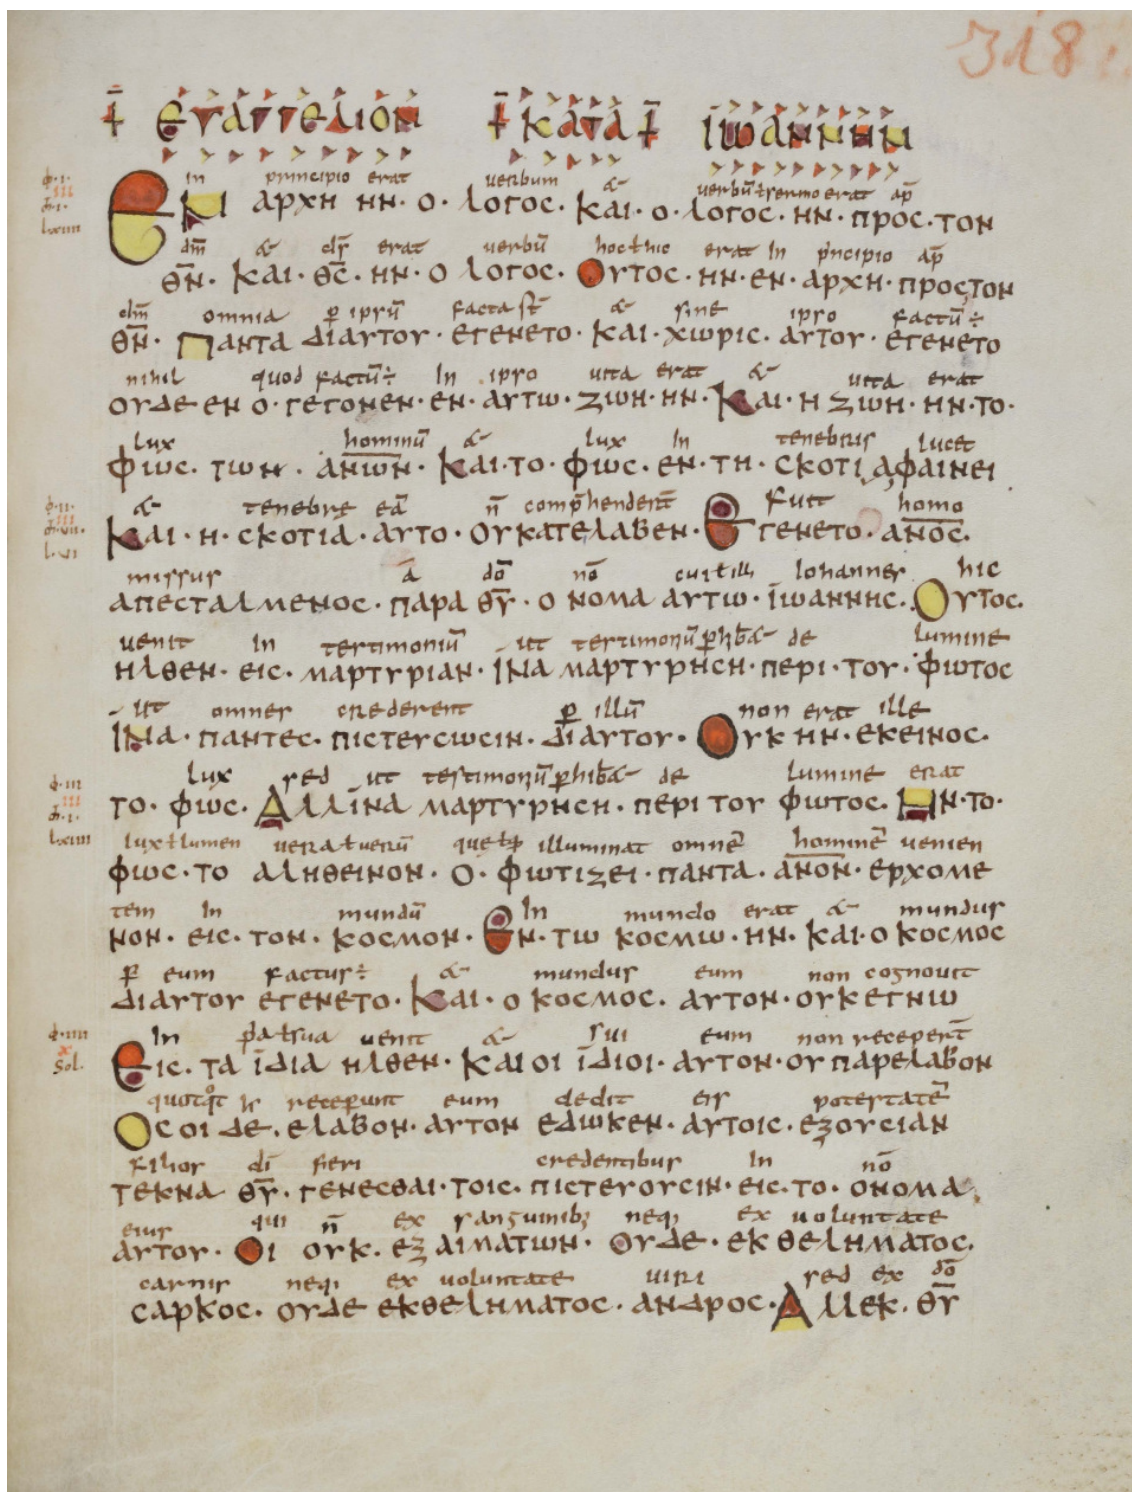 318
ⲉⲩⲁⲅⲅⲉⲗⲓⲟⲛ ⲕⲁⲧⲁ ⲓⲱⲁⲛⲛⲏⲛ
in principio erat uerbum & uerbū ł sermo erat ap̄
ΕΝ ΑΡΧΗ ΗΝ· Ο· ΛΟΓΟC· ΚΑΙ· Ο· ΛΟΓΟC· ΗΝ· ΠΡΟC· ΤΟΝ
dm̄ & ds̄ erat uerbū hoc ł hic erat In principio ap̄
Θ̅Ν̅· ΚΑΙ· Θ̅C̅· ΗΝ· Ο ΛΟΓΟC· ΟΥΤΟC· ΗΝ· ΕΝ· ΑΡΧΗ· ΠΡΟCΤΟΝ
dm̄ omnia ꝑ ipsū facta st̄ & sine ipso factū ÷
Θ̅Ν̅· ΠΑΝΤΑ ΔΙΑΥΤΟΥ· ΕΓΕΝΕΤΟ· ΚΑΙ· ΧΩΡΙC· ΑΥΤΟΥ· ΕΓΕΝΕΤΟ
nihil quod factū ÷ In ipso uita erat & uita erat
ΟΥΔΕ ΕΝ Ο· ΓΕΓΟΝΕΝ· ΕΝ· ΑΥΤΩ· ΖΩΗ· ΗΝ· ΚΑΙ· Η ΖΩΗ· ΗΝ· ΤΟ·
lux hominū & lux In tenebris lucet
ΦΩC· ΤΩΝ· Α̅Ν̅Ω̅Ν̅· ΚΑΙ· ΤΟ· ΦΩC· ΕΝ· ΤΗ· CΚΟΤΙΑ ΦΑΙΝΕΙ
& tenebrę eā n̄ comp̄hendert̄ Fuit homo
ΚΑΙ· Η· CΚΟΤΙΑ· ΑΥΤΟ· ΟΥΚΑΤΕΛΑΒΕΝ· ΕΓΕΝΕΤΟ· Α̅Ν̅Ο̅C̅·
missus ā dō nō cui ł illi Iohannes hic
ΑΠΕCΤΑΛΜΕΝΟC· ΠΑΡΑ Θ̅Υ̅· Ο ΝΟΜΑ ΑΥΤΩ· ΪΩΑΝΝΗC· ΟΥΤΟC·
uenit In testimoniū ut testimoniū ꝑhib& de lumine
ΗΛΘΕΝ· ΕΙC· ΜΑΡΤΥΡΙΑΝ· ΙΝΑ ΜΑΡΤΥΡΗCΗ· ΠΕΡΙ· ΤΟΥ· ΦΩΤΟC
ut omnes crederent ꝑ illū non erat ille
ΙΝΑ· ΠΑΝΤΕC· ΠΙCΤΕΥCΩCΙΝ· ΔΙΑΥΤΟΥ· ΟΥΚ ΗΝ· ΕΚΕΙΝΟC·
lux sed ut testimoniū ꝑhib& de lumine erat
ΤΟ· ΦΩC· ΑΛΛΙΝΑ ΜΑΡΤΥΡΗCΗ· ΠΕΡΙ ΤΟΥ ΦΩΤΟC· ΗΝ· ΤΟ·
lux ł lumen uera ł uerū illuminat omnē hominē uenien
ΦΩC· ΤΟ ΑΛΗΘΕΙΝΟΝ· Ο· ΦΩΤΙΖΕΙ· ΠΑΝΤΑ· Α̅Ν̅Ο̅Ν̅· ΕΡΧΟΜΕ
tem In mundū In mundo erat & mundus
ΝΟΝ· ΕΙC· ΤΟΝ· ΚΟCΜΟΝ· ΕΝ· ΤΩ ΚΟCΜΩ· ΗΝ· ΚΑΙ· Ο ΚΟCΜΟC
ꝑ eum factus ÷ & mundus eum non cognouit
ΔΙΑΥΤΟΥ ΕΓΕΝΕΤΟ· ΚΑΙ· Ο ΚΟCΜΟC· ΑΥΤΟΝ· ΟΥΚΕΓΝΩ
In ꝓpa ł sua uenit & sui eum non recepert̄
ΕΙC· ΤΑ ΪΔΙΑ ΗΛΘΕΝ· ΚΑΙ ΟΙ ΪΔΙΟΙ· ΑΥΤΟΝ· ΟΥ ΠΑΡΕΛΑΒΟΝ
receperunt eum dedit eis potestatē
ΟCΟΙ ΔΕ· ΕΛΑΒΟΝ· ΑΥΤΟΝ ΕΔΩΚΕΝ· ΑΥΤΟΙC· ΕΞΟΥCΙΑΝ
filios dī fieri credentibus In nō
ΤΕΚΝΑ Θ̅Υ̅· ΓΕΝΕCΘΑΙ· ΤΟΙC· ΠΙCΤΕΥΟΥCΙΝ· ΕΙC· ΤΟ· ΟΝΟΜΑ
eius qui n̄ ex sanguinibꝫ neqꝫ ex uoluntate
ΑΥΤΟΥ· ΟΙ ΟΥΚ· ΕΞ ΑΙΜΑΤΩΝ· ΟΥΔΕ· ΕΚ ΘΕΛΗΜΑΤΟC·
carnis neqꝫ ex uoluntate uiri sed ex dō
CΑΡΚΟC· ΟΥΔΕ ΕΚΘΕΛΗΜΑΤΟC· ΑΝΔΡΟC· ΑΛΛΕΚ· Θ̅Υ̅